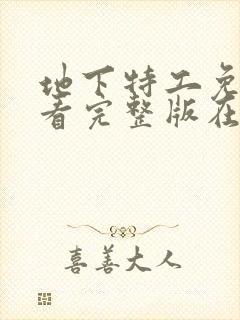 地下特工免
看完整版在
喜善大人